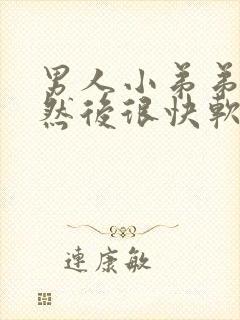 男人小弟弟
然後很快軟
連康敏